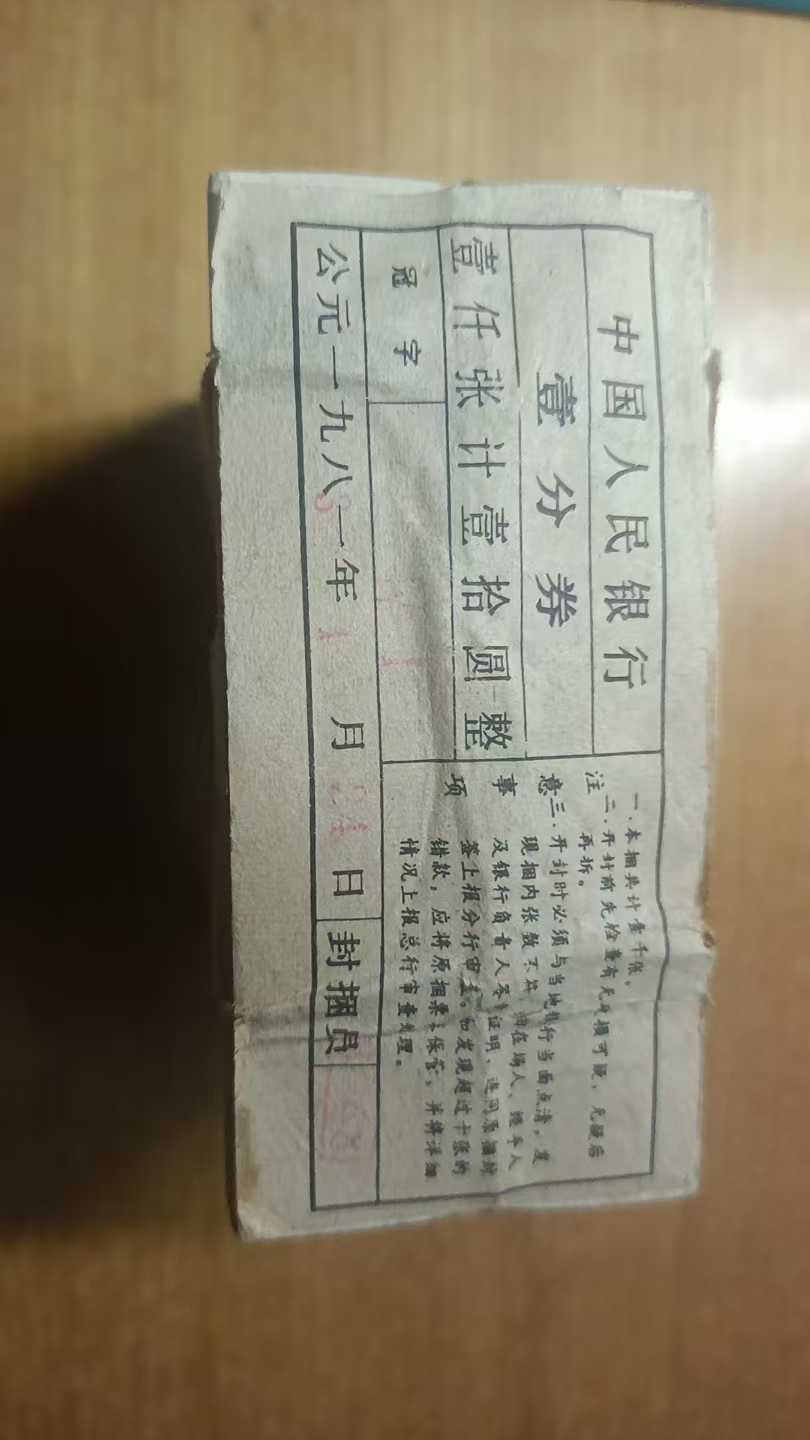 中国人民银行
壹分券
壹仟张计壹拾圆整
冠字
公元一九八一年 1 月 24 日 封捆员
注意事项
一.本捆共计壹千张。
二.开封前先检查有无破损可疑,无疑后
再拆。
三.开封时必须与当地银行当面点清,发
现捆内张数不符,由在场人、经手人
及银行负责人签 证明、连同原捆封
签上报分行审查。如发现超过十张的
错款,应将原捆票 保管、并将详细
情况上报总行审查处理。